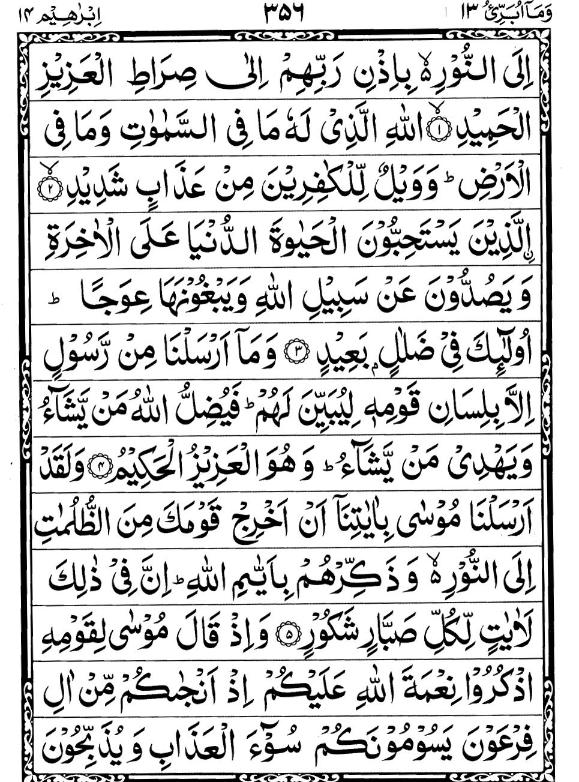 وَمَآ اُبَرِّئُ ١٣ ٣٥٦ اِبْرٰهِيْم ١٤
اِلَى النُّوْرِ ەۙ بِاِذْنِ رَبِّهِمْ اِلٰى صِرَاطِ الْعَزِيْزِ
الْحَمِيْدِ ۙ‏﴿۱﴾ اللّٰهِ الَّذِىْ لَهٗ مَا فِى السَّمٰوٰتِ وَمَا فِى
الْاَرْضِ‌ؕ وَوَيْلٌ لِّلْكٰفِرِيْنَ مِنْ عَذَابٍ شَدِيْدِ ۙ‏﴿۲﴾
اۨلَّذِيْنَ يَسْتَحِبُّوْنَ الْحَيٰوةَ الدُّنْيَا عَلَى الْاٰخِرَةِ
وَيَصُدُّوْنَ عَنْ سَبِيْلِ اللّٰهِ وَيَبْغُوْنَهَا عِوَجًا ؕ
اُولٰۤئِكَ فِىْ ضَلٰلٍۢ بَعِيْدٍ ﴿۳﴾ وَمَاۤ اَرْسَلْنَا مِنْ رَّسُوْلٍ
اِلَّا بِلِسَانِ قَوْمِهٖ لِيُبَيِّنَ لَهُمْؕ فَيُضِلُّ اللّٰهُ مَنْ يَّشَآءُ
وَيَهْدِىْ مَنْ يَّشَآءُؕ وَهُوَ الْعَزِيْزُ الْحَكِيْمُ ﴿۴﴾ وَلَقَدْ
اَرْسَلْنَا مُوْسٰى بِاٰيٰتِنَاۤ اَنْ اَخْرِجْ قَوْمَكَ مِنَ الظُّلُمٰتِ
اِلَى النُّوْرِ ەۙ وَذَكِّرْهُمْ بِاَيّٰٮمِ اللّٰهِؕ اِنَّ فِىْ ذٰلِكَ
لَاٰيٰتٍ لِّكُلِّ صَبَّارٍ شَكُوْرٍ ﴿۵﴾ وَاِذْ قَالَ مُوْسٰى لِقَوْمِهِ
اذْكُرُوْا نِعْمَةَ اللّٰهِ عَلَيْكُمْ اِذْ اَنْجٰٮكُمْ مِّنْ اٰلِ
فِرْعَوْنَ يَسُوْمُوْنَكُمْ سُوْٓءَ الْعَذَابِ وَيُذَبِّحُوْنَ